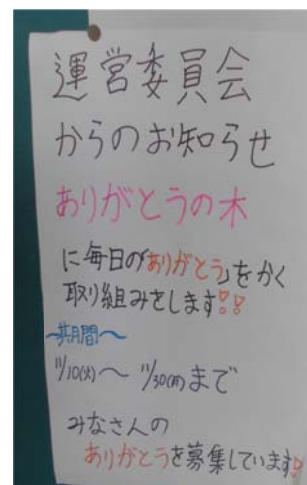 運営委員会
からのお知らせ
ありがとうの木
に毎日の「ありがとう」をかく
取り組みをします!!
〜期間〜
11/10(火)〜11/30(月)まで
みなさんの
ありがとうを募集しています!